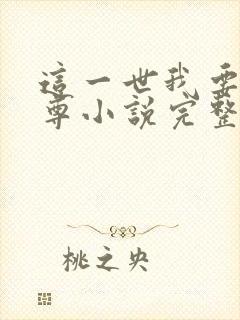 這一世我要
尊小說完整
桃之央